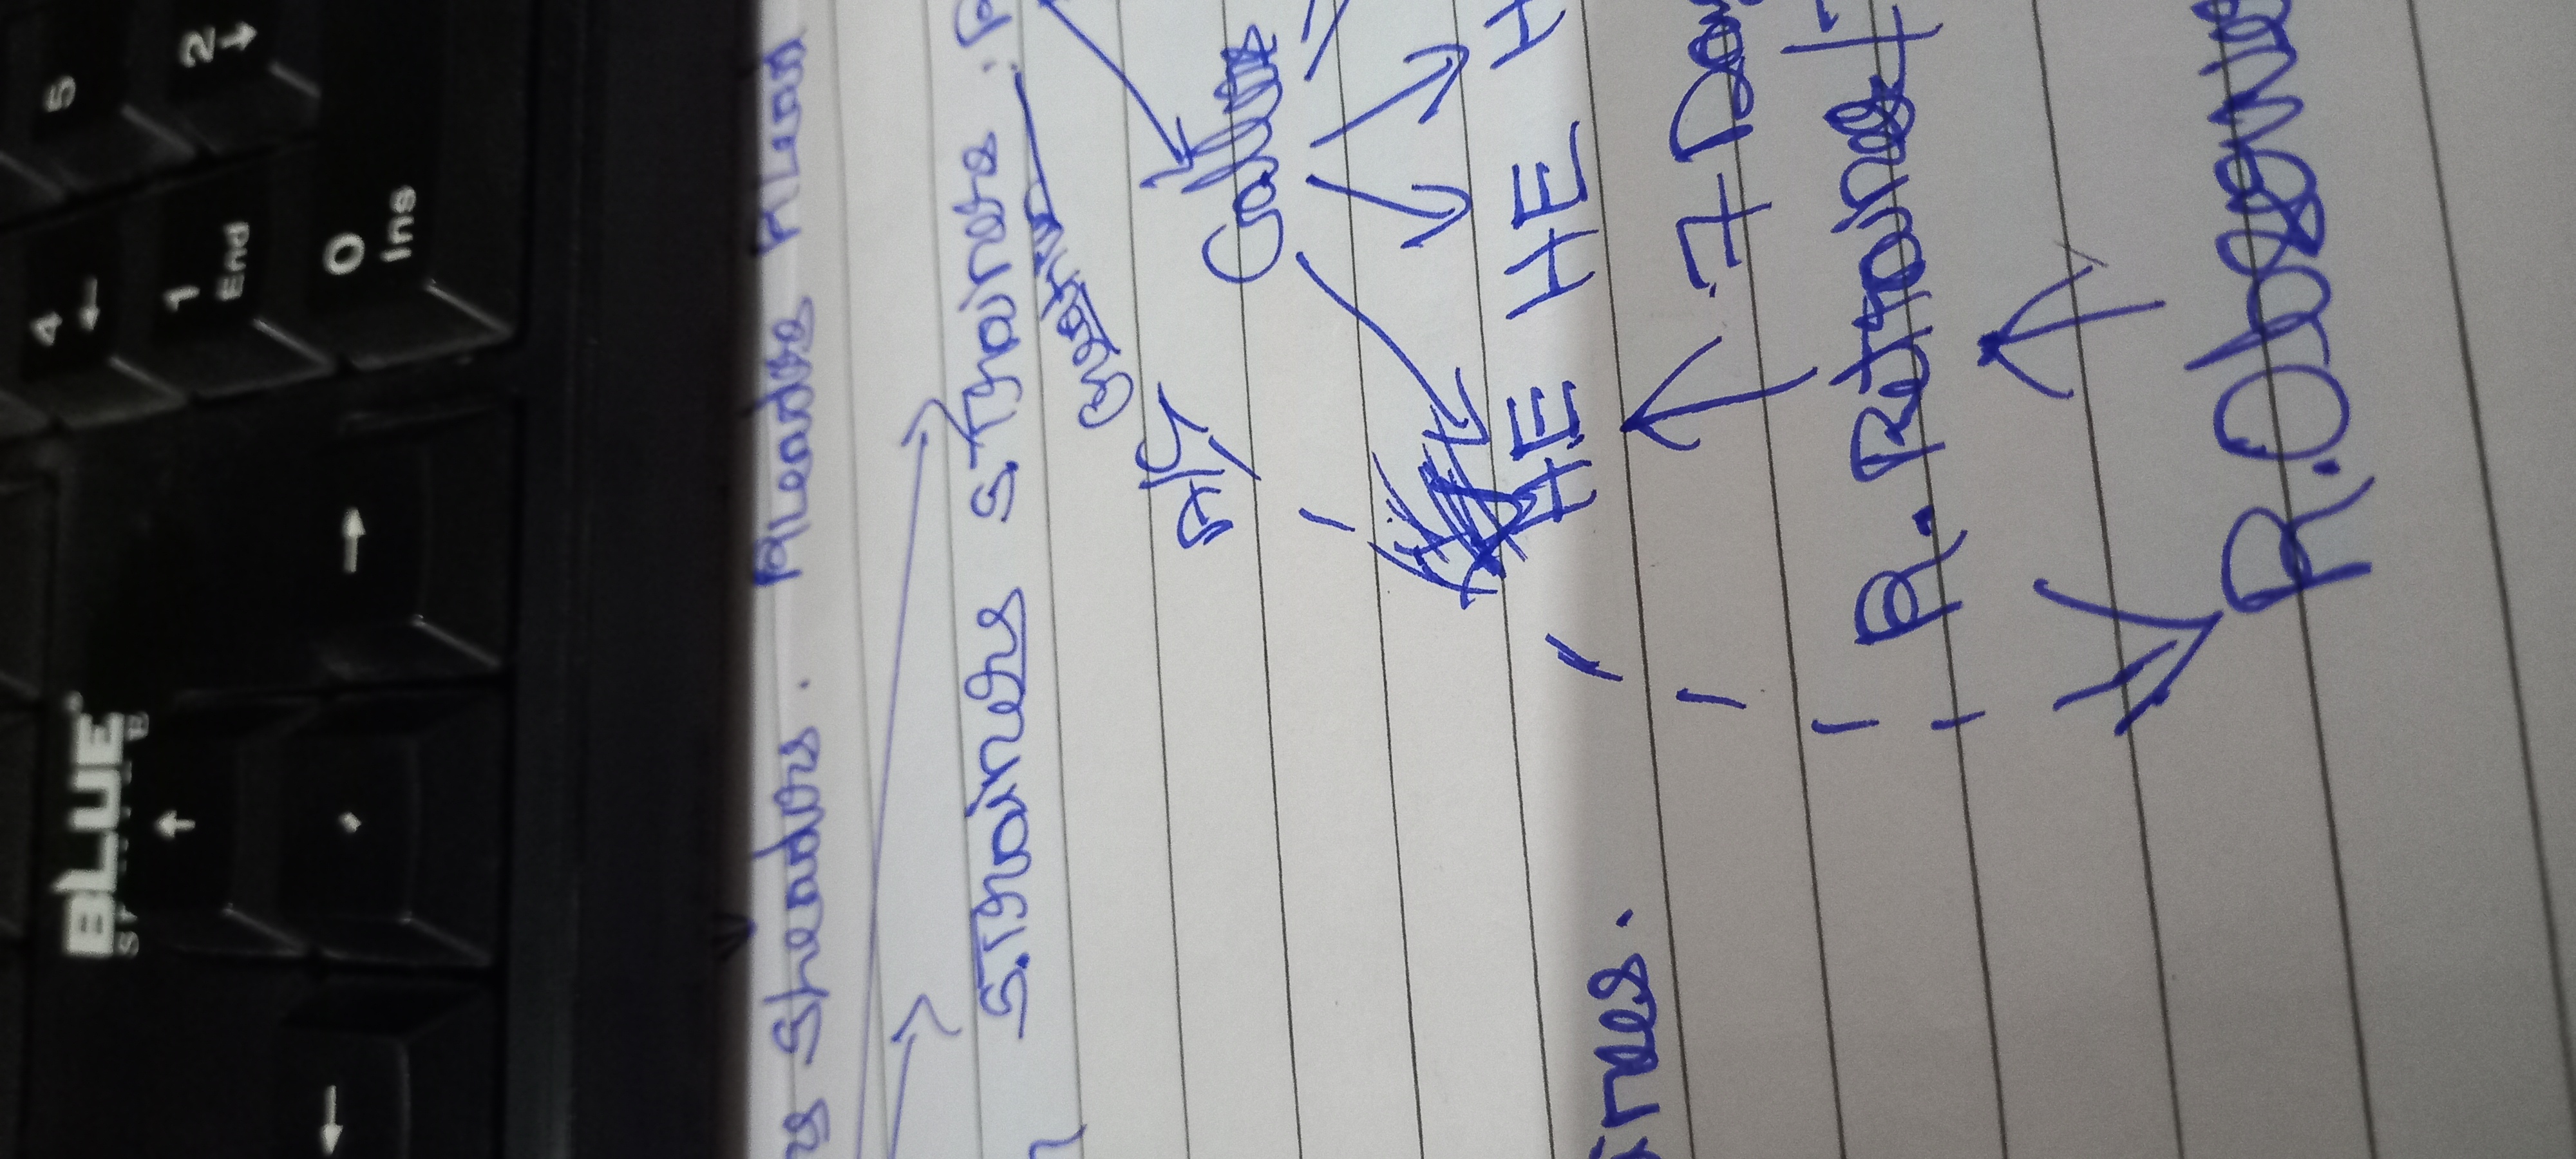 BLUE
4 5
←
↑
1 2
End ↓
← → 0
Ins
Sleaders. RLeaders RLead
S.Trainers S.Trainers
A/C Creation
Callers
HE HE H
7 Day
R. Retrainer /
R.Observe